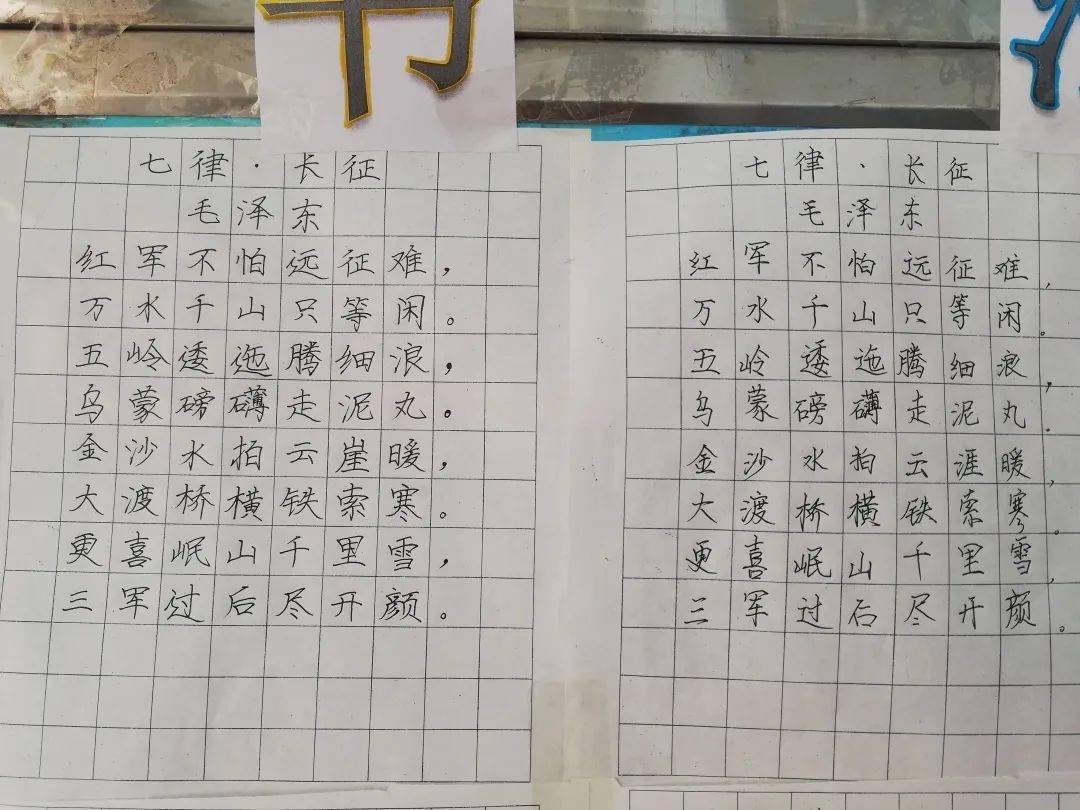 七律·长征
毛泽东
红军不怕远征难，
万水千山只等闲。
五岭逶迤腾细浪，
乌蒙磅礴走泥丸。
金沙水拍云崖暖，
大渡桥横铁索寒。
更喜岷山千里雪，
三军过后尽开颜。
七律·长征
毛泽东
红军不怕远征难，
万水千山只等闲。
五岭逶迤腾细浪，
乌蒙磅礴走泥丸。
金沙水拍云涯暖，
大渡桥横铁索寒。
更喜岷山千里雪，
三军过后尽开颜。